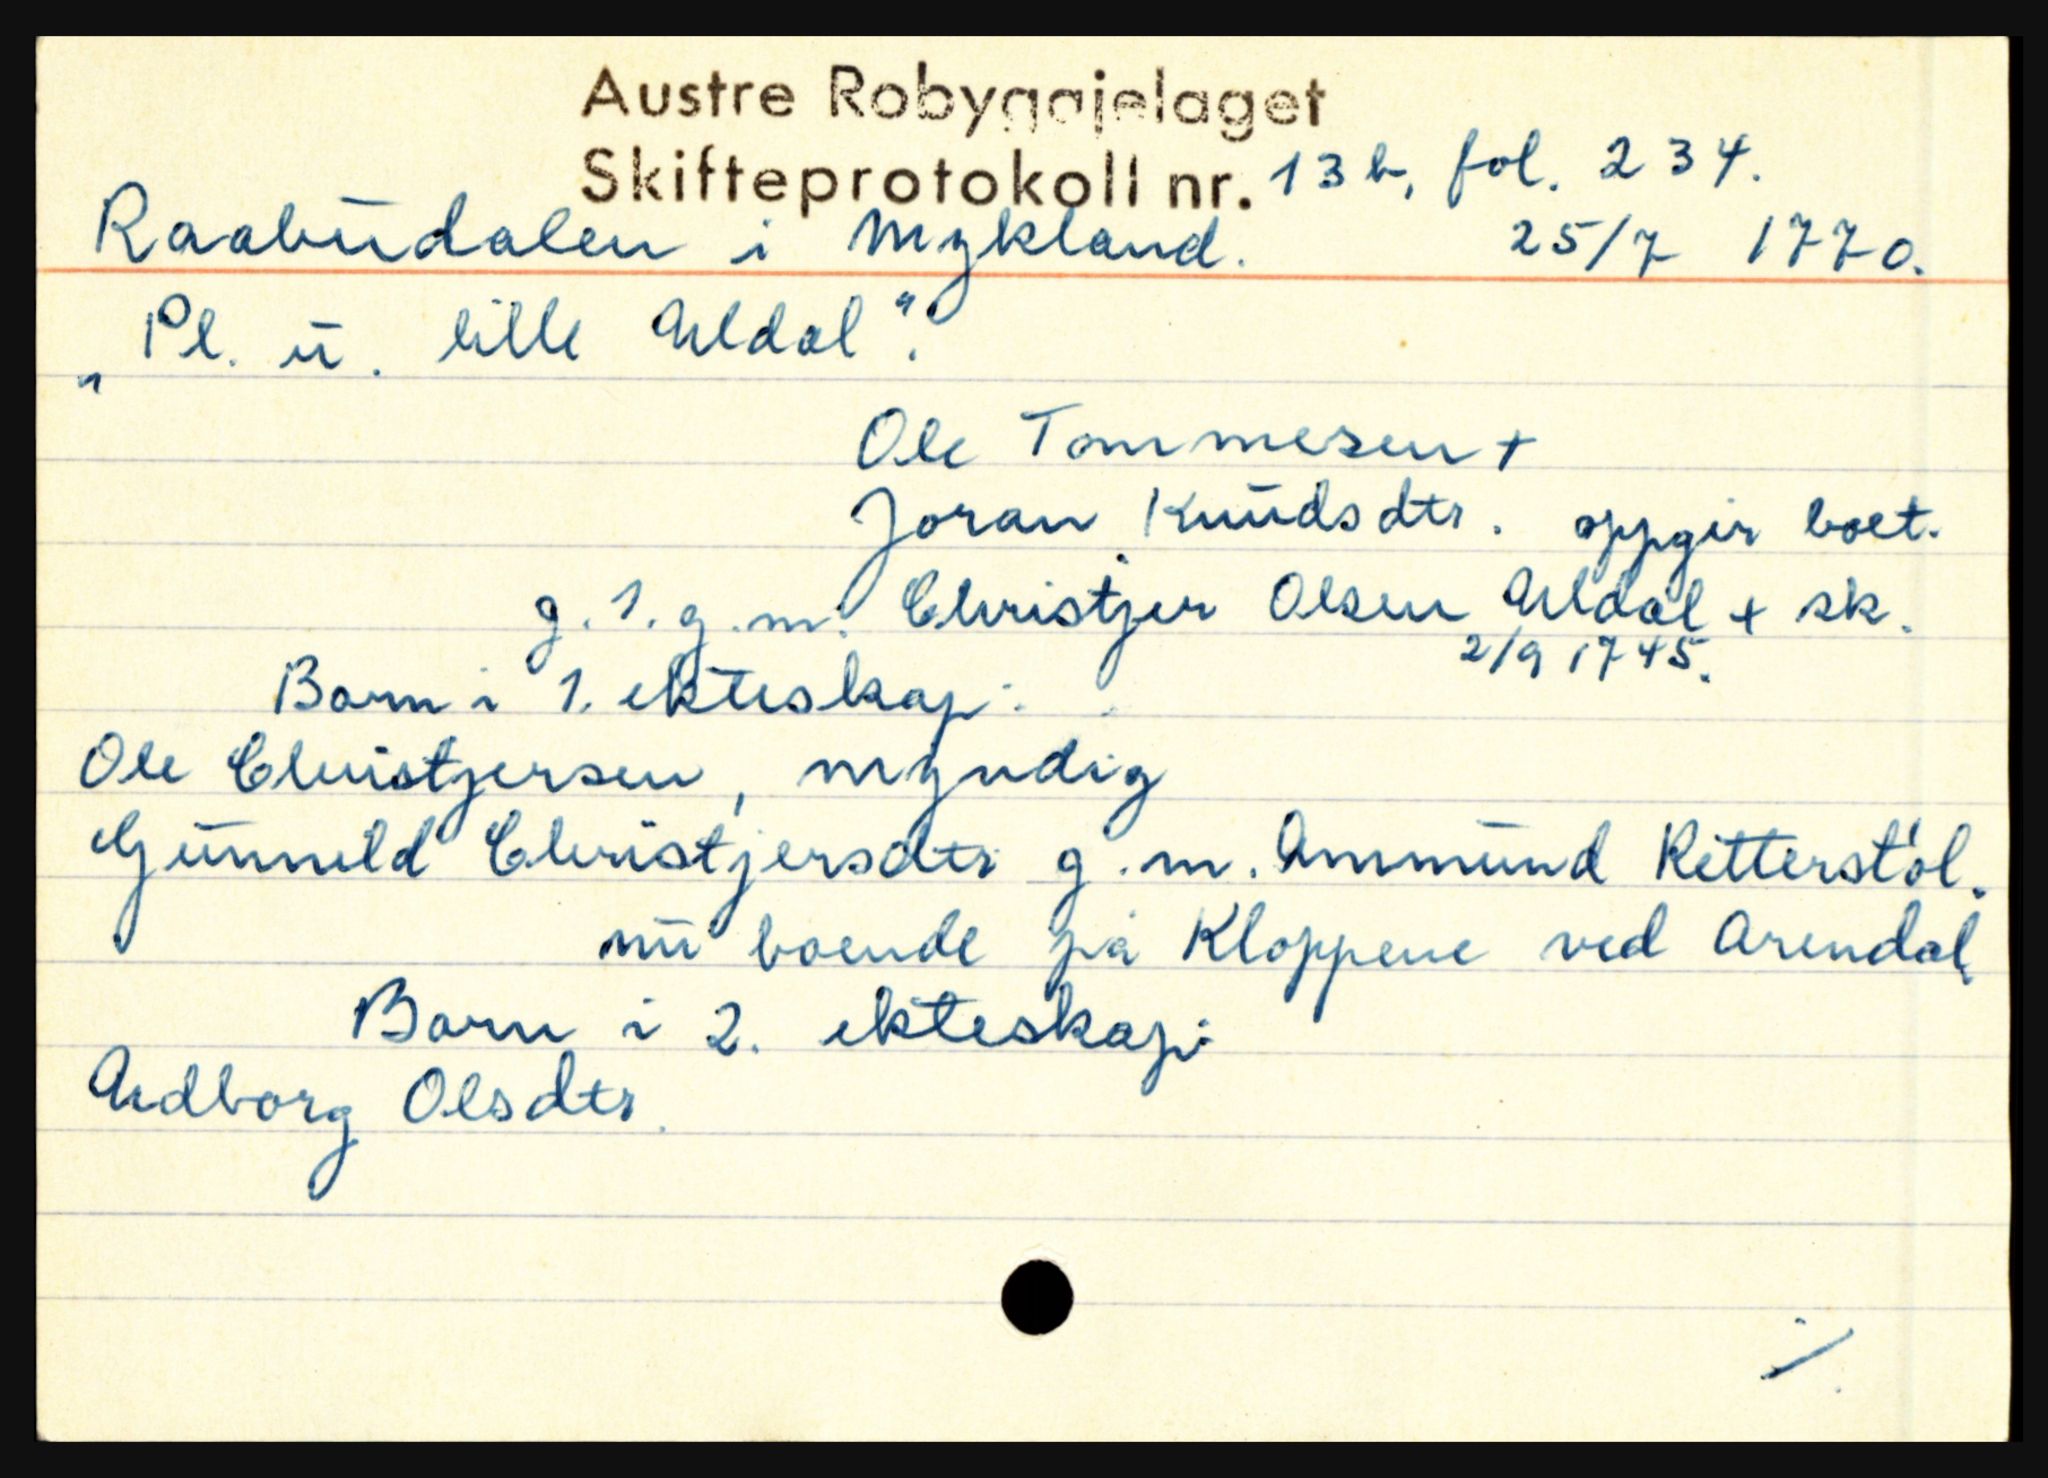 Austre Robyggjelaget
Skifteprotokoll nr. 13b, fol. 234.
Raabudalen i Mykland. 25/7 1770.
„Pl. u. lille Uldal“.
Ole Tommesen +
Joran Knudsdtr. oppgir boet.
g. 1. g. m. Christjer Olsen Uldal + sk.
2/9 1745.
Born i 1. ekteskap:
Ole Christjersen, myndig
Gunnild Christjersdtr g. m. Ammund Retterstøl.
nu boende på Kloppene ved Arendal
Born i 2. ekteskap:
Audborg Olsdtr.